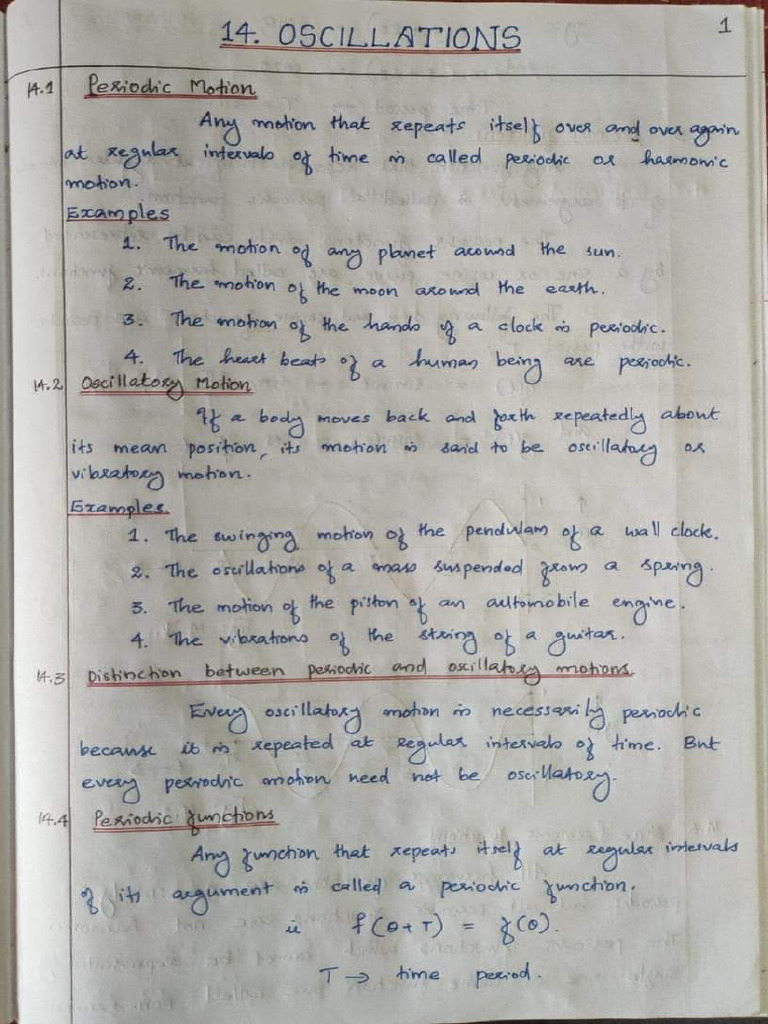 14. OSCILLATIONS
1
14.1 Periodic Motion
Any motion that repeats itself over and over again
at regular intervals of time is called periodic or harmonic
motion.
Examples
1. The motion of any planet around the sun.
2. The motion of the moon around the earth.
3. The motion of the hands of a clock is periodic.
4. The heart beats of a human being are periodic.
14.2 Oscillatory Motion
If a body moves back and forth repeatedly about
its mean position, its motion is said to be oscillatory or
vibratory motion.
Examples
1. The swinging motion of the pendulam of a wall clock.
2. The oscillations of a mass suspended from a spring.
3. The motion of the piston of an automobile engine.
4. The vibrations of the string of a guitar.
14.3 Distinction between periodic and oscillatory motions
Every oscillatory motion is necessarily periodic
because it is repeated at regular intervals of time. But
every periodic motion need not be oscillatory.
14.4 Periodic functions
Any function that repeats itself at regular intervals
of its argument is called a periodic function.
ie f(θ+T) = f(θ).
T → time period.